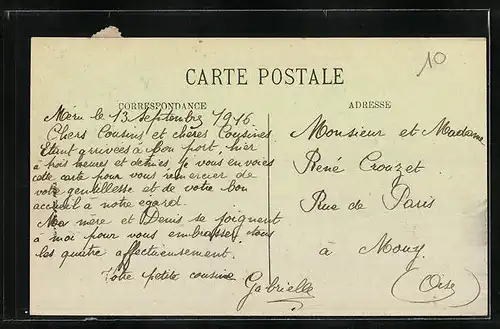 10
CARTE POSTALE
CORRESPONDANCE
ADRESSE
Méru le 13 Septembre 1916.
Chers Cousins et chères Cousines
Etant arrivées à bon port, hier
à trois heures et demies je vous envoies
cette carte pour vous remercier de
votre gentillesse et de votre bon
accueil à notre egard.
Ma mère et Denis se joignent
à moi pour vous embrasser tous
les quatre affectieusement.
Votre petite cousine
Gabrielle
Monsieur et Madame
René Crouzet
Rue de Paris
à Mouy
(Oise)